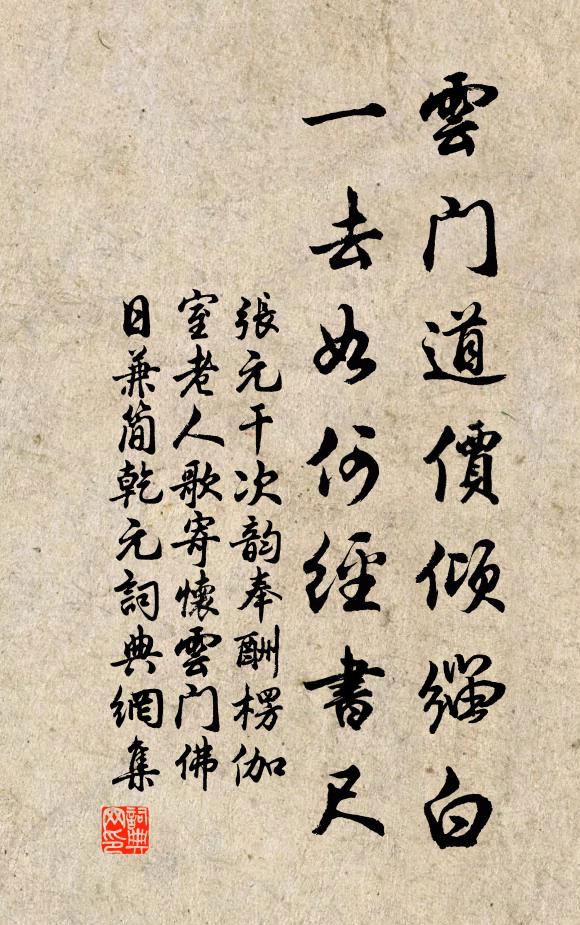 雲門道價傾緇白
一去如何經書尺
張元干次韵奉酬楞伽
室老人歌寄懷雲門佛
日兼簡乾元詞典網集
詞典网印